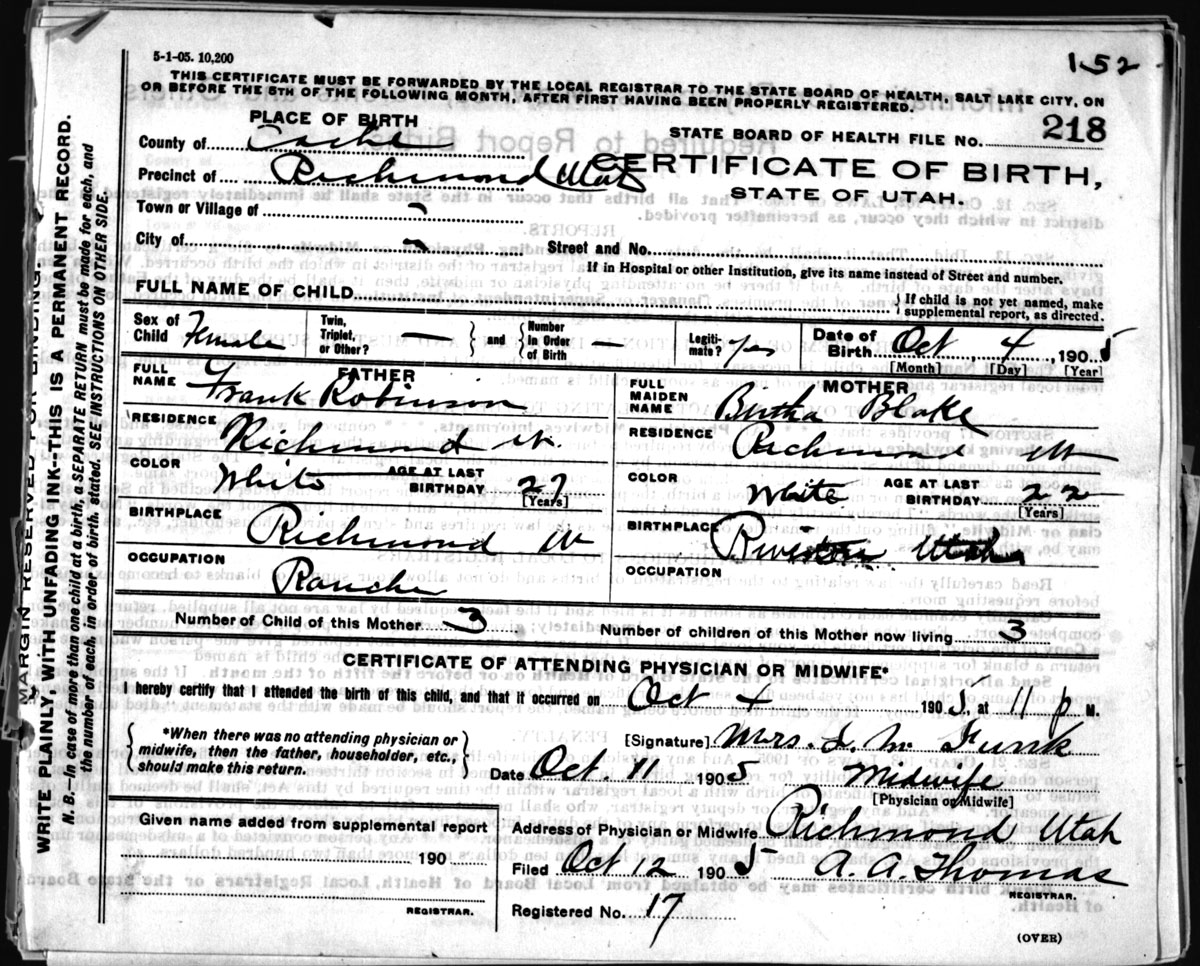 5-1-05. 10,200
152
THIS CERTIFICATE MUST BE FORWARDED BY THE LOCAL REGISTRAR TO THE STATE BOARD OF HEALTH, SALT LAKE CITY, ON
OR BEFORE THE 5TH OF THE FOLLOWING MONTH, AFTER FIRST HAVING BEEN PROPERLY REGISTERED.
PLACE OF BIRTH
STATE BOARD OF HEALTH FILE No. 218
County of Cache
CERTIFICATE OF BIRTH,
Precinct of Richmond Utah
STATE OF UTAH.
Town or Village of -
City of - Street and No.
If in Hospital or other Institution, give its name instead of Street and number.
FULL NAME OF CHILD { If child is not yet named, make supplemental report, as directed.
Sex of Child Female Twin, Triplet, or Other? — } and { Number In Order of Birth — Legitimate? yes Date of Birth Oct, 4, 1905
[Month] [Day] [Year]
FATHER
FULL NAME Frank Robinson
RESIDENCE Richmond Ut.
COLOR White AGE AT LAST BIRTHDAY 27
[Years]
BIRTHPLACE Richmond Ut
OCCUPATION Rancher
MOTHER
FULL MAIDEN NAME Bertha Blake
RESIDENCE Richmond Ut
COLOR White AGE AT LAST BIRTHDAY 22
[Years]
BIRTHPLACE Utah
OCCUPATION
Number of Child of this Mother 3 Number of children of this Mother now living 3
CERTIFICATE OF ATTENDING PHYSICIAN OR MIDWIFE*
I hereby certify that I attended the birth of this child, and that it occurred on Oct 4 1905, at 11 p M.
{ *When there was no attending physician or midwife, then the father, householder, etc., should make this return. }
[Signature] Mrs. L. M. Funk
Date Oct 11 1905 Midwife
[Physician or Midwife]
Given name added from supplemental report
190
REGISTRAR.
Address of Physician or Midwife Richmond Utah
Filed Oct 12 1905 A. A. Thomas
REGISTRAR.
Registered No. 17
(OVER)
MARGIN RESERVED FOR BINDING.
WRITE PLAINLY, WITH UNFADING INK—THIS IS A PERMANENT RECORD.
N. B.—In case of more than one child at a birth, a SEPARATE RETURN must be made for each, and
the number of each, in order of birth, stated. SEE INSTRUCTIONS ON OTHER SIDE.